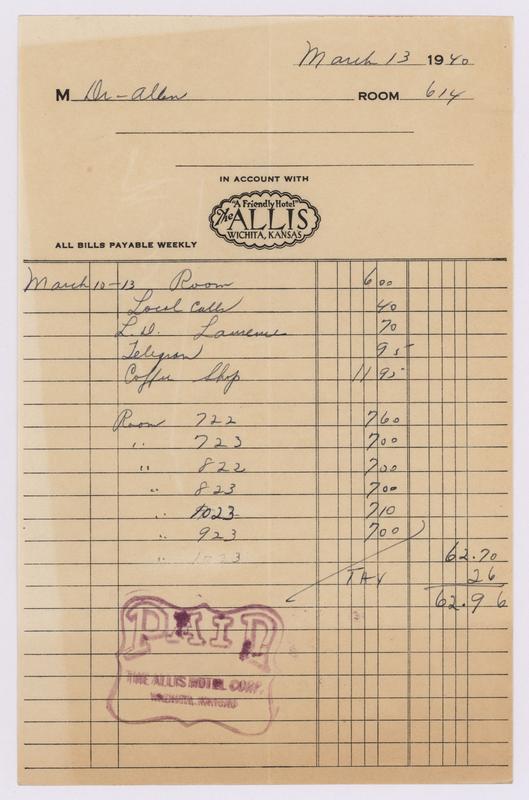 March 13 1940
M Dr-Allen ROOM 614
IN ACCOUNT WITH
"A Friendly Hotel"
The ALLIS
WICHITA, KANSAS
ALL BILLS PAYABLE WEEKLY
March 10-13 Room 6 00
Local Calls 40
L. D. Lawrence 70
Telegram 95
Coffee Shop 11 95
Room 722 7 60
" 723 7 00
" 822 7 00
" 823 7 00
" 1023 7 10
" 923 7 00
" 1023
62.70
TAX 26
62.96
PAID
THE ALLIS HOTEL CORP.
WICHITA, KANSAS